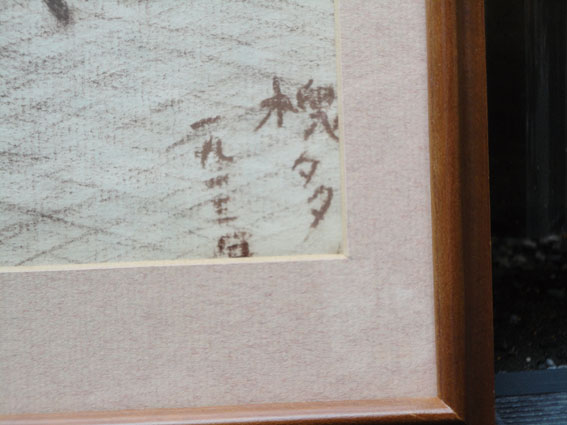 槐多
一九一三